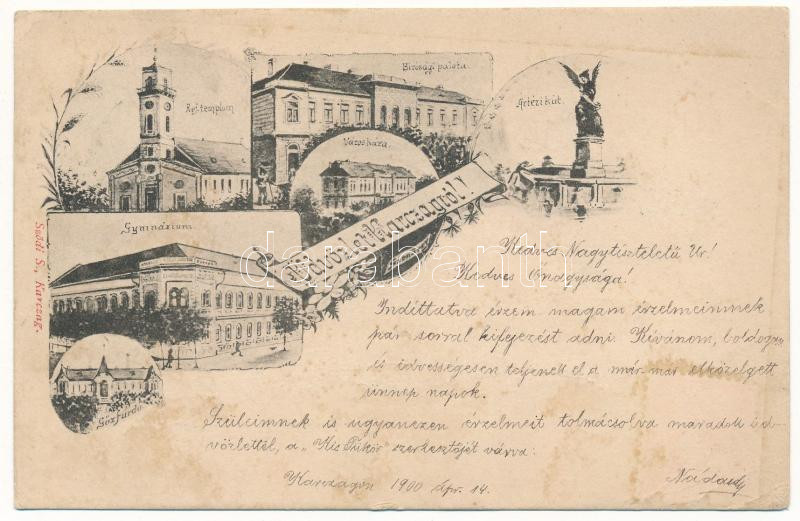 Ref. templom
Birósági palota
Artézi kút.
Városháza.
Üdvözlet Karczagról!
Gymnázium
Gőzfürdő
Szódi S., Karczag.
darabanth
Kedves Nagytiszteletü Úr!
Kedves Őnagysága!
Indíttatva érzem magam érzelmeimnek
pár sorral kifejezést adni. Kívánom, boldogan
és üdvességesen teljenek el a már-már elközelgett
ünnep napok.
Szüleimnek is ugyanezen érzelmeit tolmácsolva maradok üd-
vözlettel, a "Kis Tükör" szerkesztőjét várva:
Karczagon 1900 Ápr. 14.